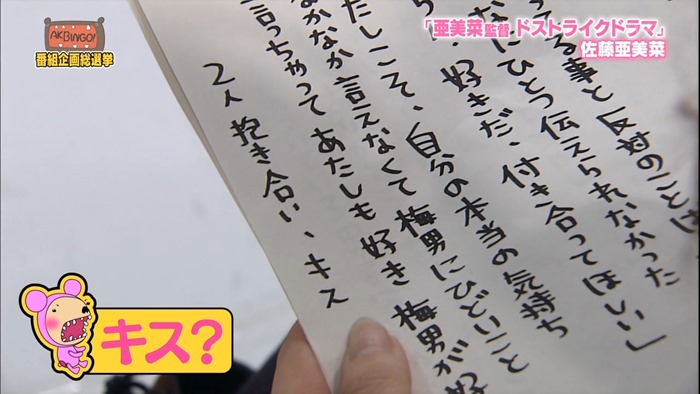 AKBINGO!
番組企画総選挙
「亜美菜監督 ドストライクドラマ」
佐藤亜美菜
てる事と反対のことば
なにひとつ伝えられなかった
好きだ、付き合ってほしい」
たしこそ、自分の本当の気持ち
なかなか言えなくて梅男にひどいこと
言っちゃって あたしも好き 梅男が好
2人抱き合い、キス
キス?